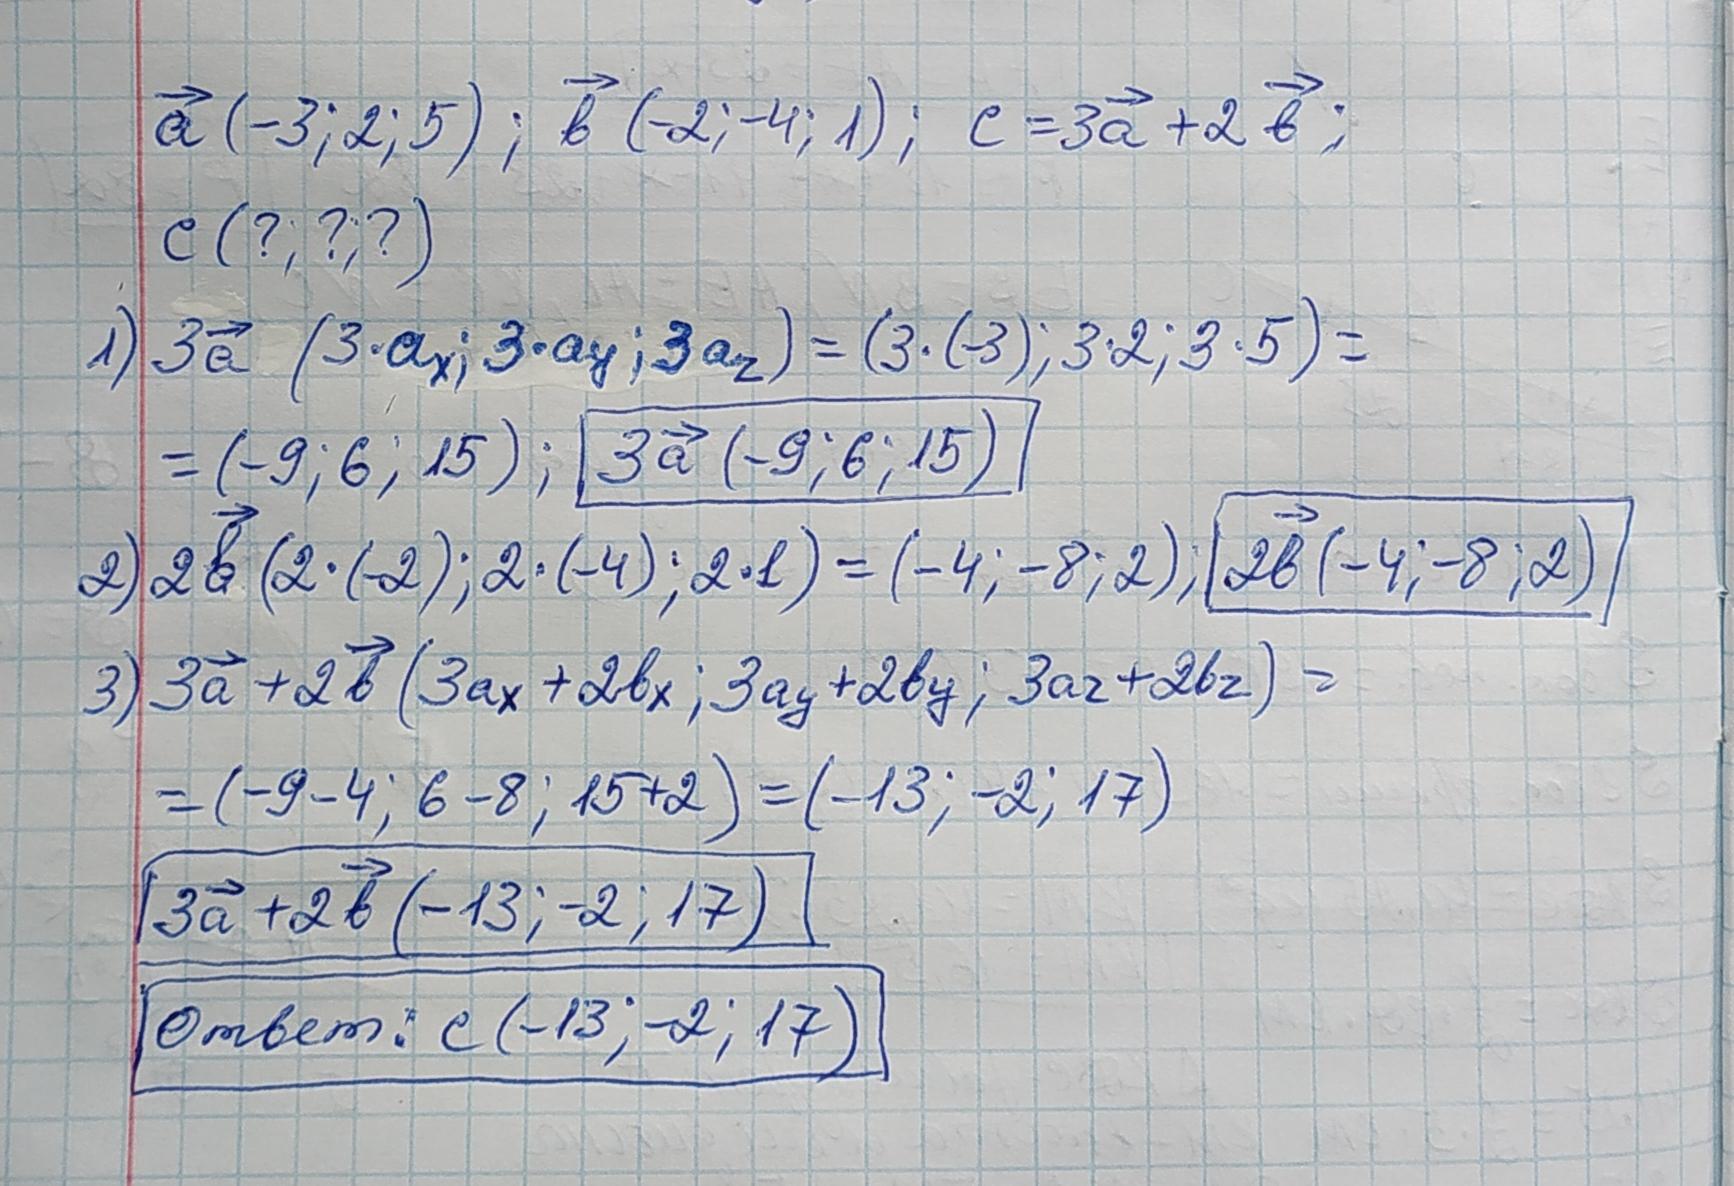 a⃗ (-3; 2; 5) ; b⃗ (-2; -4; 1) ; c = 3a⃗ + 2b⃗ ;
c (?; ?; ?)
1) 3a⃗ (3·ax; 3·ay; 3az) = (3·(-3); 3·2; 3·5) =
= (-9; 6; 15) ; 3a⃗ (-9; 6; 15)
2) 2b⃗ (2·(-2); 2·(-4); 2·1) = (-4; -8; 2) ; 2b⃗ (-4; -8; 2)
3) 3a⃗ + 2b⃗ (3ax + 2bx; 3ay + 2by; 3az + 2bz) =
= (-9-4; 6-8; 15+2) = (-13; -2; 17)
3a⃗ + 2b⃗ (-13; -2; 17)
Ответ: c (-13; -2; 17)